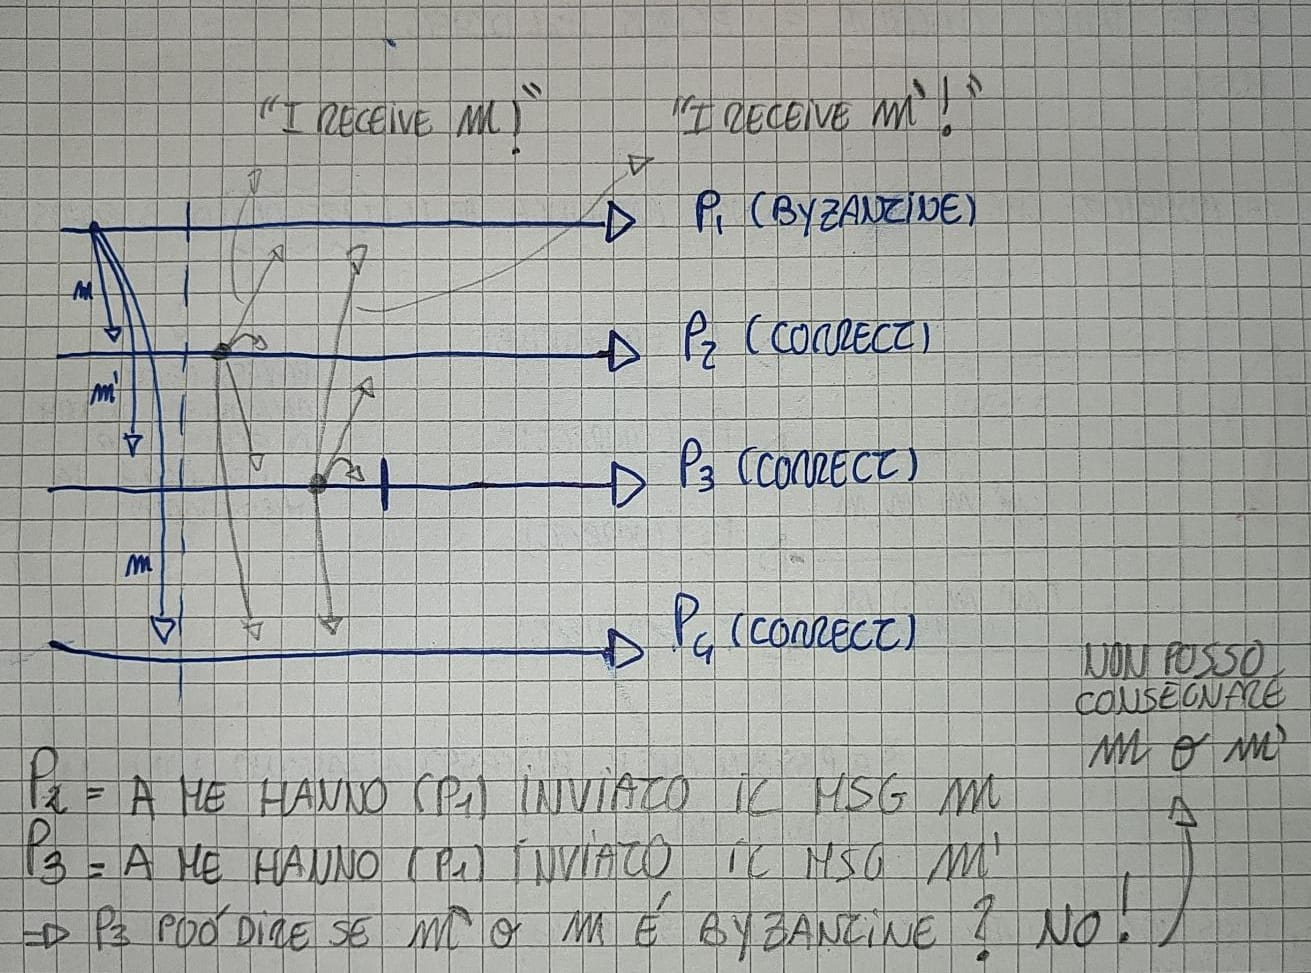 "I RECEIVE M!"
"I RECEIVE M'!"
P1 (BYZANTINE)
M
P2 (CORRECT)
M'
P3 (CORRECT)
M
P4 (CORRECT)
NON POSSO
CONSEGNARE
M O M'
P2 = A ME HANNO (P1) INVIATO IL MSG M
P3 = A ME HANNO (P1) INVIATO IL MSG M'
=> P3 PUÓ DIRE SE M' O M É BYZANTINE? NO!